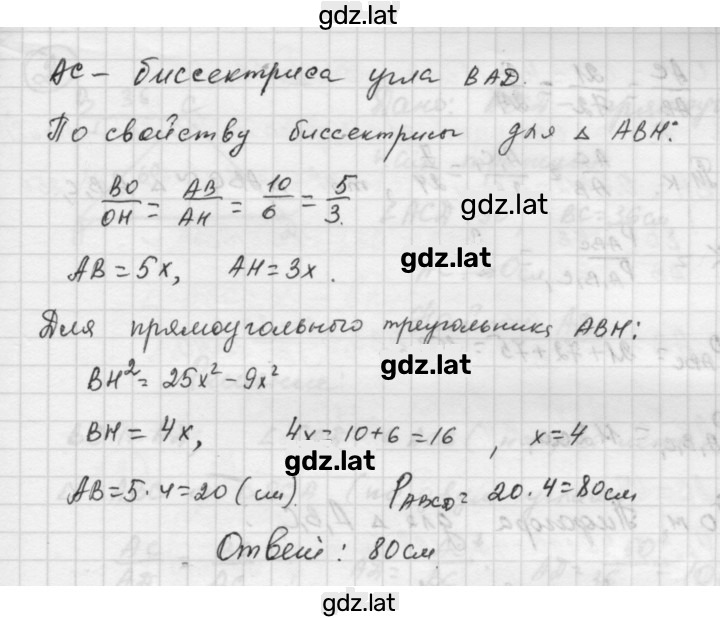 gdz.lat
AC – биссектриса угла BAD.
По свойству биссектрисы для △ ABH:
BO/OH = AB/AH = 10/6 = 5/3.
gdz.lat
AB = 5x, AH = 3x.
Для прямоугольного треугольника ABH:
gdz.lat
BH² = 25x² – 9x²
BH = 4x, 4x = 10 + 6 = 16, x = 4
gdz.lat
AB = 5 · 4 = 20 (см). P_ABCD = 20 · 4 = 80 см
Ответ: 80 см.
gdz.lat